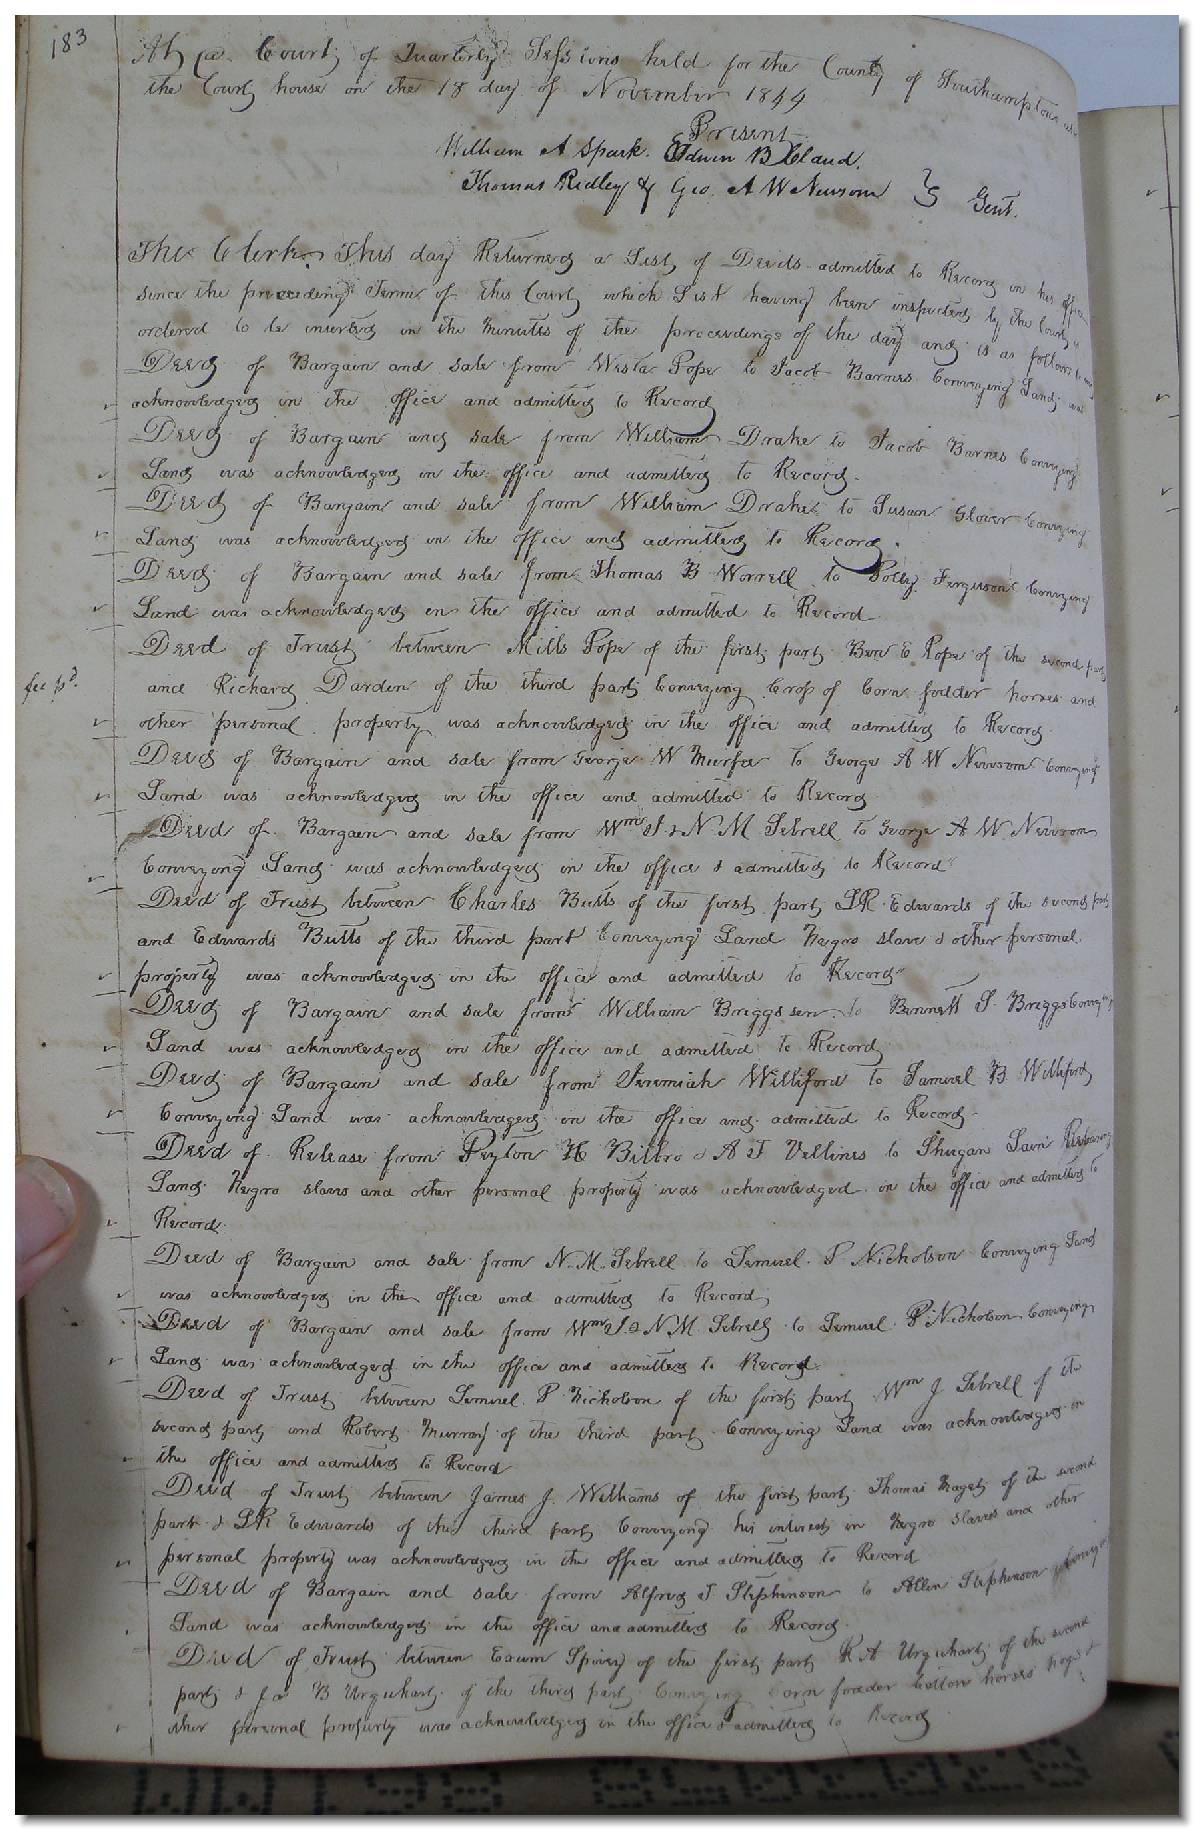 183
At a Court of Quarterly Sessions held for the County of Southampton at
the Court house on the 18 day of November 1844
Present
William A Spark. Edwin B Claud.
Thomas Ridley & Geo. A W Newsom } Gent.
The Clerk This day Returned a List of Deeds admitted to Record in his office
since the preceeding Term of this Court which List having been inspected by the Court is
ordered to be inserted in the minutes of the proceedings of the day and is as follows to wit
Deed of Bargain and sale from Pope to Jacob Barnes Conveying Land was
acknowledged in the office and admitted to Record
Deed of Bargain and sale from William Drake to Jacob Barnes Conveying
Land was acknowledged in the office and admitted to Record.
Deed of Bargain and sale from William Drake to Susan Glover Conveying
Land was acknowledged in the office and admitted to Record.
Deed of Bargain and sale from Thomas B Worrell to Polly Ferguson Conveying
Land was acknowledged in the office and admitted to Record
Deed of Trust between Mills Pope of the first part Ben E Pope of the second part
fee pd.
and Richard Darden of the third part Conveying Crop of Corn fodder horses and
other personal property was acknowledged in the office and admitted to Record
Deed of Bargain and sale from George W Murfee to George A W Newsom Conveying
Land was acknowledged in the office and admitted to Record
Deed of Bargain and sale from Wm J & N M Sebrell to George A W Newsom
Conveying Land was acknowledged in the office & admitted to Record
Deed of Trust between Charles Butts of the first part LR Edwards of the second part
and Edwards Butts of the third part Conveying Land Negro slave & other personal
property was acknowledged in the office and admitted to Record
Deed of Bargain and sale from William Briggs sen. to Bennett S. Briggs Conveying
Land was acknowledged in the office and admitted to Record
Deed of Bargain and sale from Jeremiah Williford to Samuel B Williford
Conveying Land was acknowledged in the office and admitted to Record
Deed of Release from Peyton H Bittro & A J Vellines to Releasing
Land Negro slaves and other personal property was acknowledged in the office and admitted to
Record.
Deed of Bargain and sale from N. M. Sebrell to Lemuel P Nicholson Conveying Land
was acknowledged in the office and admitted to Record
Deed of Bargain and sale from Wm J & N M Sebrell to Lemuel P Nicholson Conveying
Land was acknowledged in the office and admitted to Record.
Deed of Trust between Lemuel P Nicholson of the first part Wm J Sebrell of the
second part and Robert Murray of the third part Conveying Land was acknowledged in
the office and admitted to Record
Deed of Trust between James J. Williams of the first part Thomas Maget of the second
part & LR Edwards of the third part Conveying his interest in Negro Slaves and other
personal property was acknowledged in the office and admitted to Record
Deed of Bargain and sale from Alfred J Stephenson to Allen Stephenson Conveying
Land was acknowledged in the office and admitted to Record.
Deed of Trust between Exum Spivey of the first part R A Urquhart of the second
part & B Urquhart of the third part Conveying Corn fodder Cotton horses hogs &
other personal property was acknowledged in the office & admitted to Record